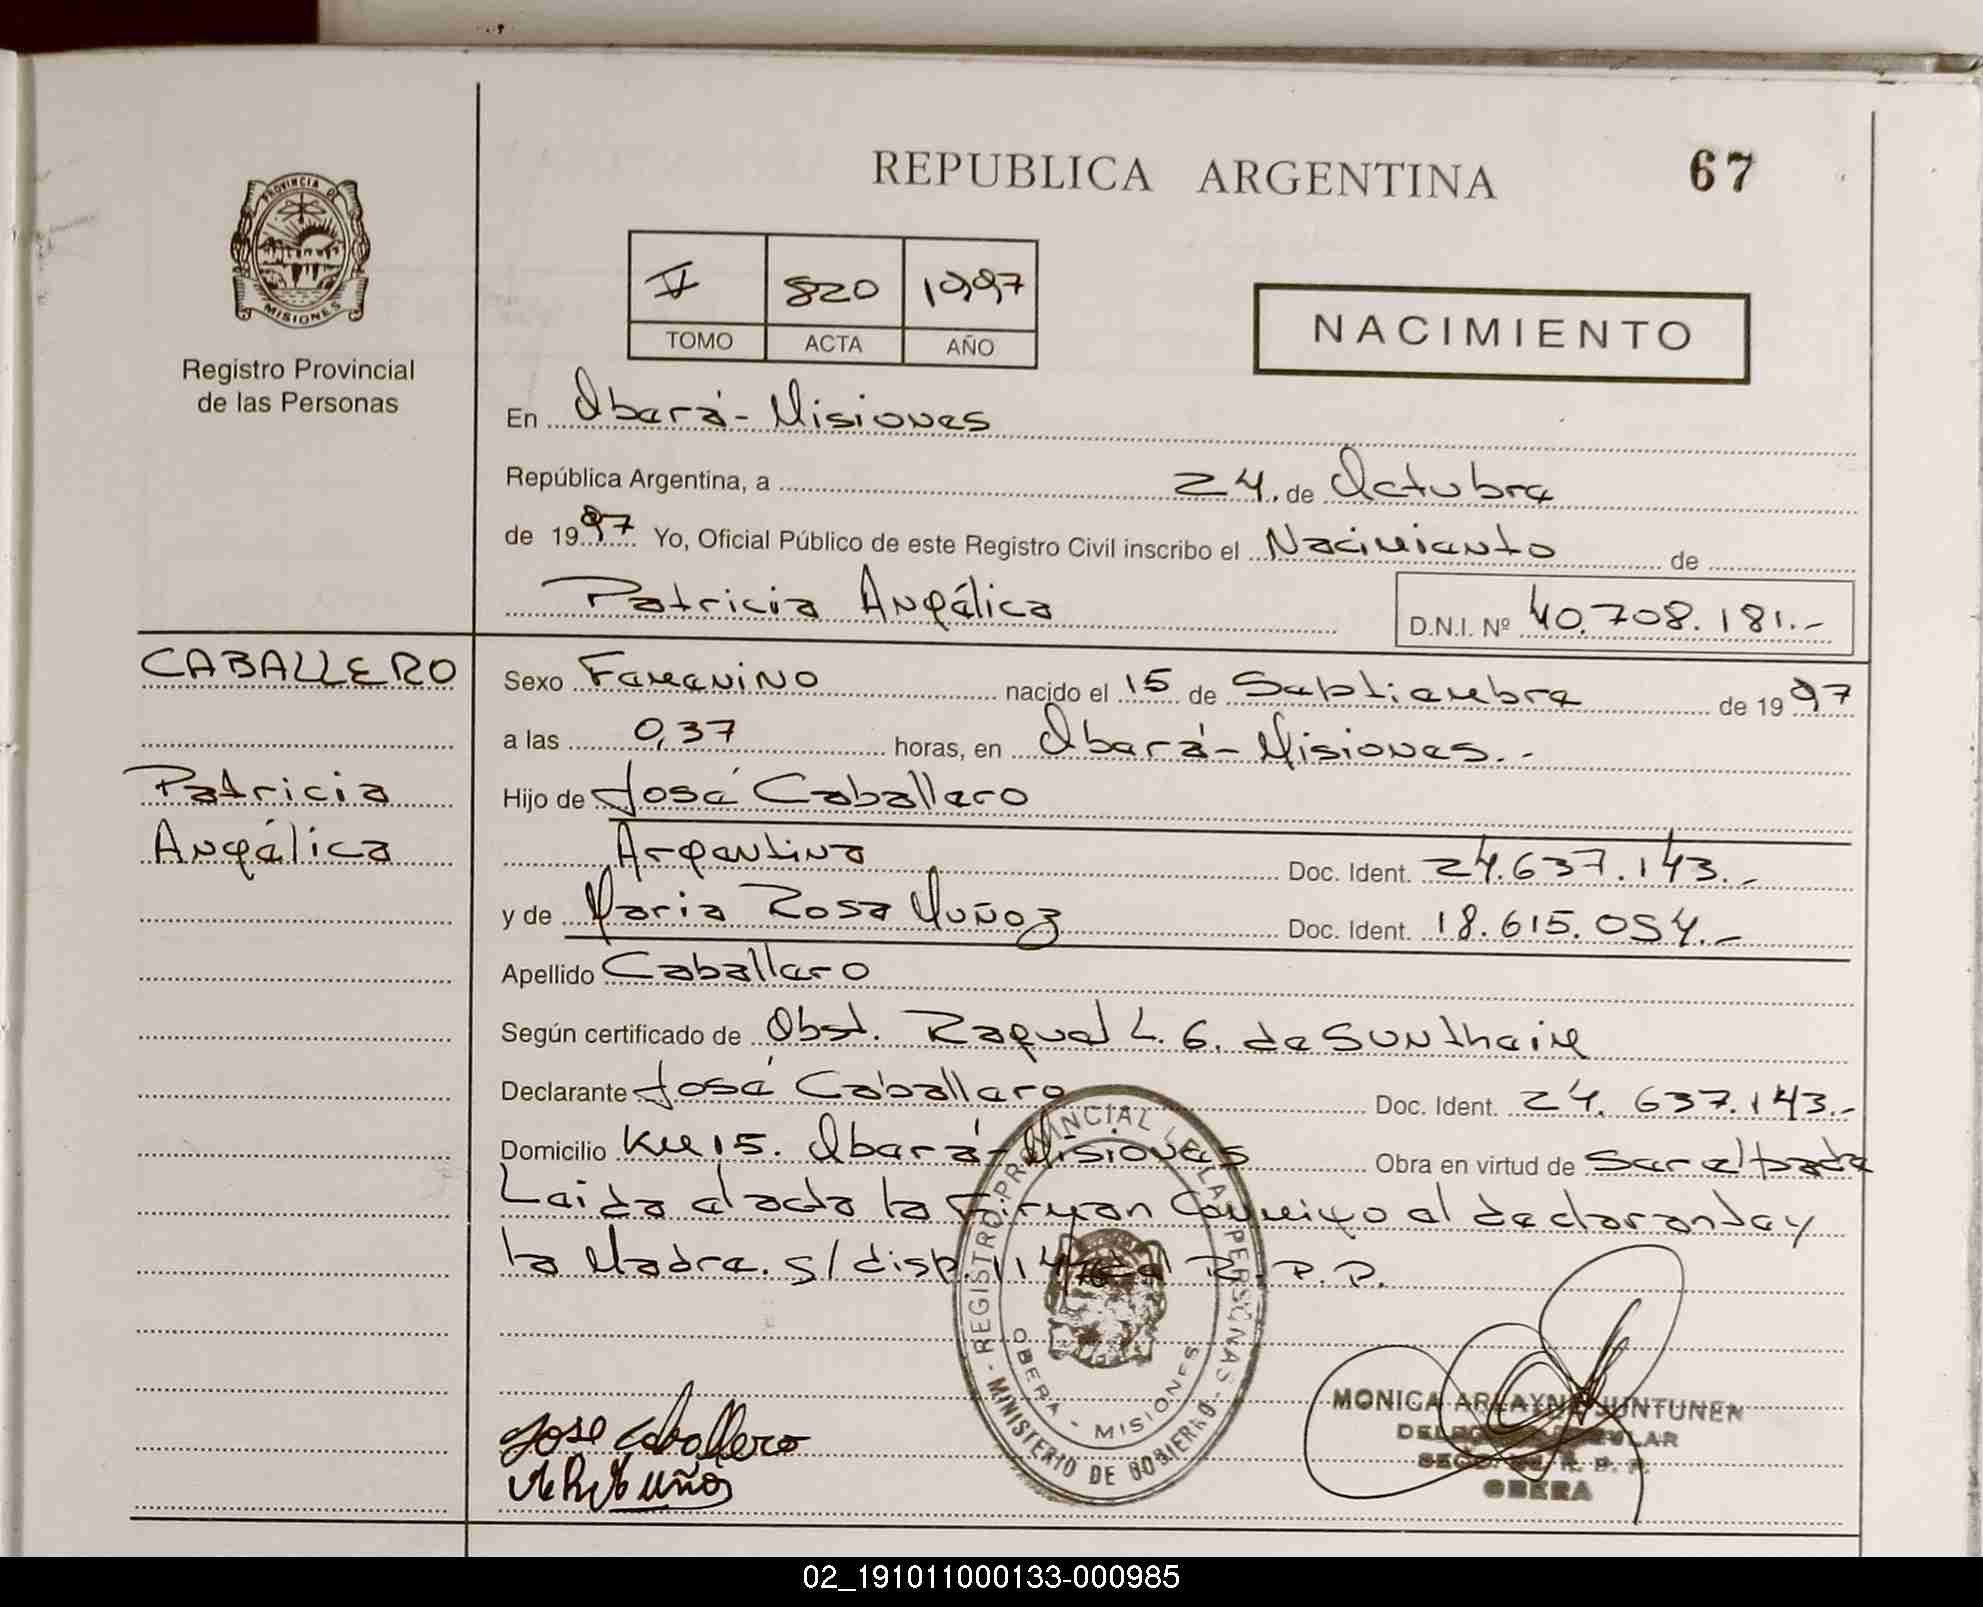 REPUBLICA ARGENTINA
67
PROVINCIA DE
MISIONES
Registro Provincial
de las Personas
V 820 1997
TOMO ACTA AÑO
NACIMIENTO
En Oberá - Misiones
República Argentina, a 24. de Octubre
de 1997 Yo, Oficial Público de este Registro Civil inscribo el Nacimiento de
Patricia Angélica D.N.I. Nº 40.708.181.-
CABALLERO
Patricia
Angélica
Sexo Femenino nacido el 15 de Septiembre de 1997
a las 0,37 horas, en Oberá - Misiones.-
Hijo de José Caballero
Argentino Doc. Ident. 24.637.143.-
y de Maria Rosa Muñoz Doc. Ident. 18.615.054.-
Apellido Caballero
Según certificado de Obst. Raquel L. G. de Sunthaim
Declarante José Caballero Doc. Ident. 24.637.143.-
Domicilio Km 15. Oberá - Misiones Obra en virtud de ser el padre
Leida el acta la Firman Conmigo el declarante y
la Madre. s/ disp. del R.P.P.
REGISTRO PROVINCIAL DE LAS PERSONAS
OBERA - MISIONES
MINISTERIO DE GOBIERNO
Jose Caballero
Muñoz
MONICA ARLAYNE JUNTUNEN
OBERA
02_191011000133-000985